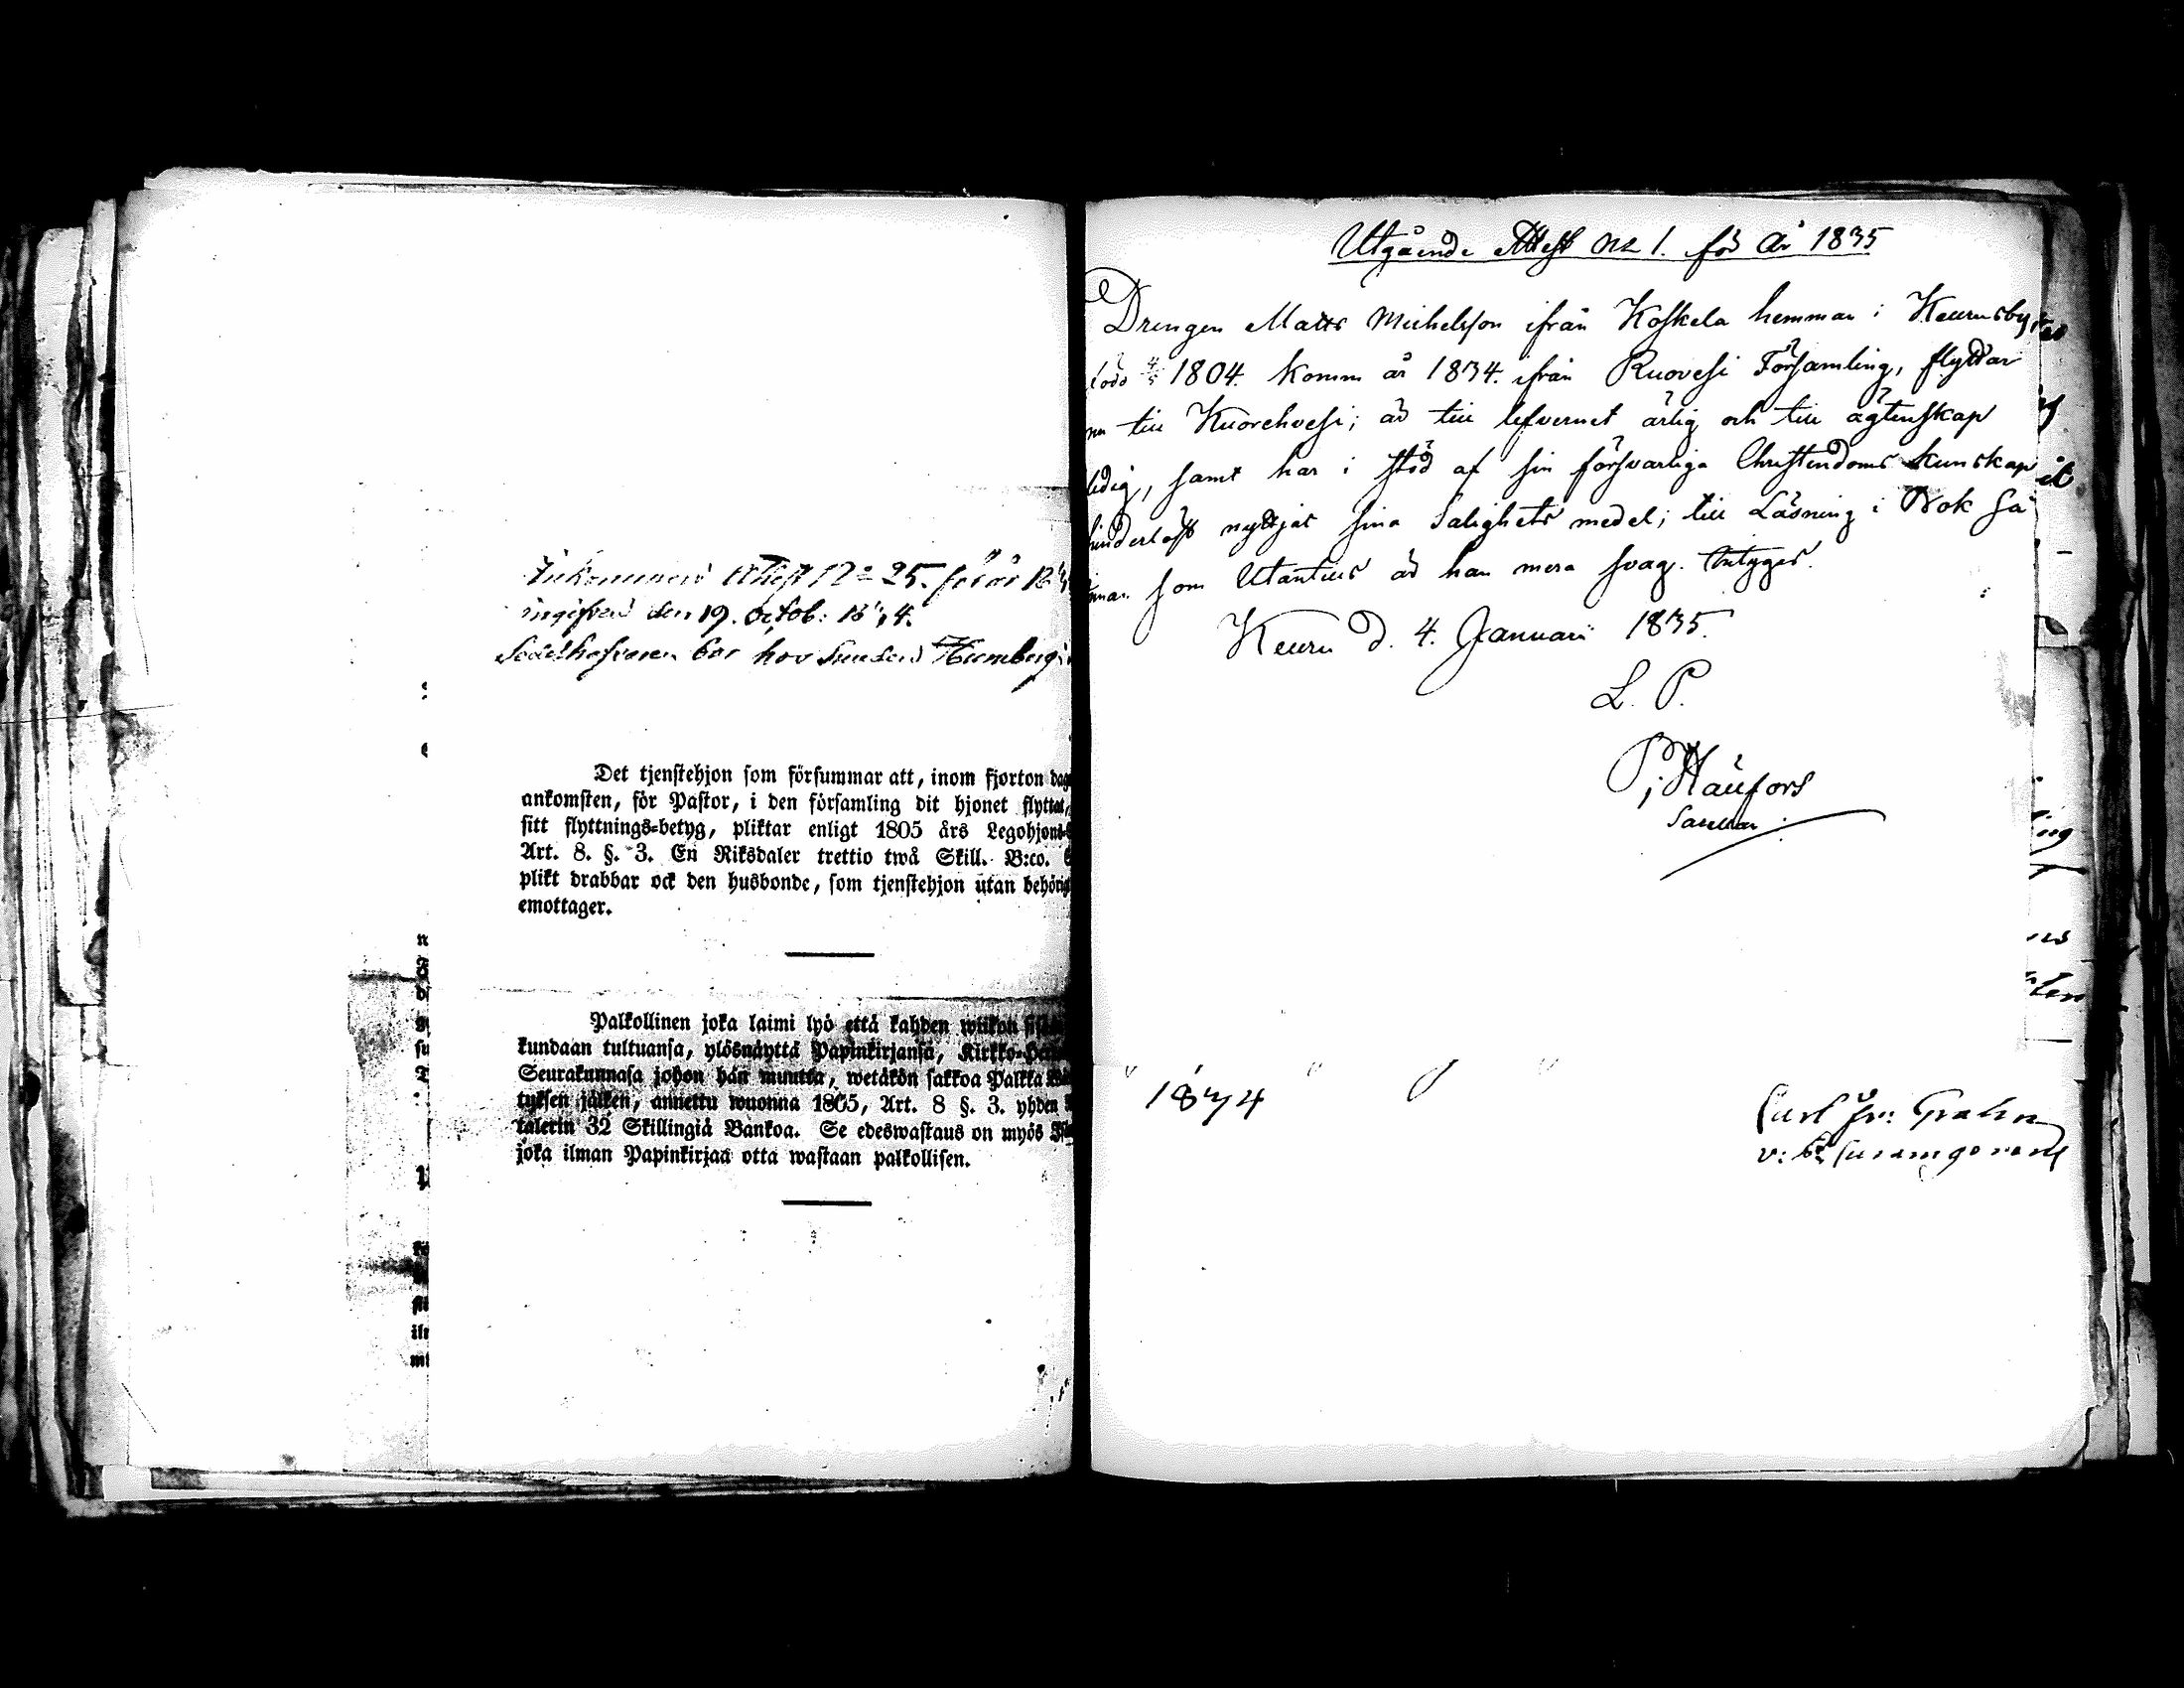 Inkommen Attest No 25. för år 184
ingifven den 19. Octob: 1834.
Sedelhafvaren bor hos Smeden
Det tjenstehjon som försummar att, inom fjorton dag
ankomsten, för Pastor, i den församling dit hjonet flyttat,
sitt flyttnings-betyg, pliktar enligt 1805 års Legohjons-
Art. 8. §. 3. En Riksdaler trettio twå Skill. B:co.
plikt drabbar ock den husbonde, som tjenstehjon utan behörig
emottager.
Palkollinen joka laimi lyö että kahden wiikon
kundaan tultuansa, ylösnäyttä Papinkirjansa, Kirkko-
Seurakunnasa johon hän muutta, wetäkön sakkoa Palkka
tyksen jälken, annettu wuonna 1805, Art. 8 §. 3. yhden
talerin 32 Skillingiä Bankoa. Se edeswastaus on myös
joka ilman Papinkirjaa otta wastaan palkollisen.
Utgående Attest No 1. för år 1835
Drengen Matts Michelsson ifrån Koskela hemman i Keurusby,
född 1804. komm år 1834. ifrån Ruovesi Församling, flyttar
nu till Kuorehvesi; är till lefvernet ärlig och till ägtenskap
ledig, samt har i stöd af sin försvarliga Christendoms kunskap
hinderlöst nyttjat sina Salighets medel; till Läsning i Bok så
innan som Utantill är han mera svag. Intygas.
Keuru d. 4. Januari 1835.
L. P.
1834
Carl Fr: Grahn